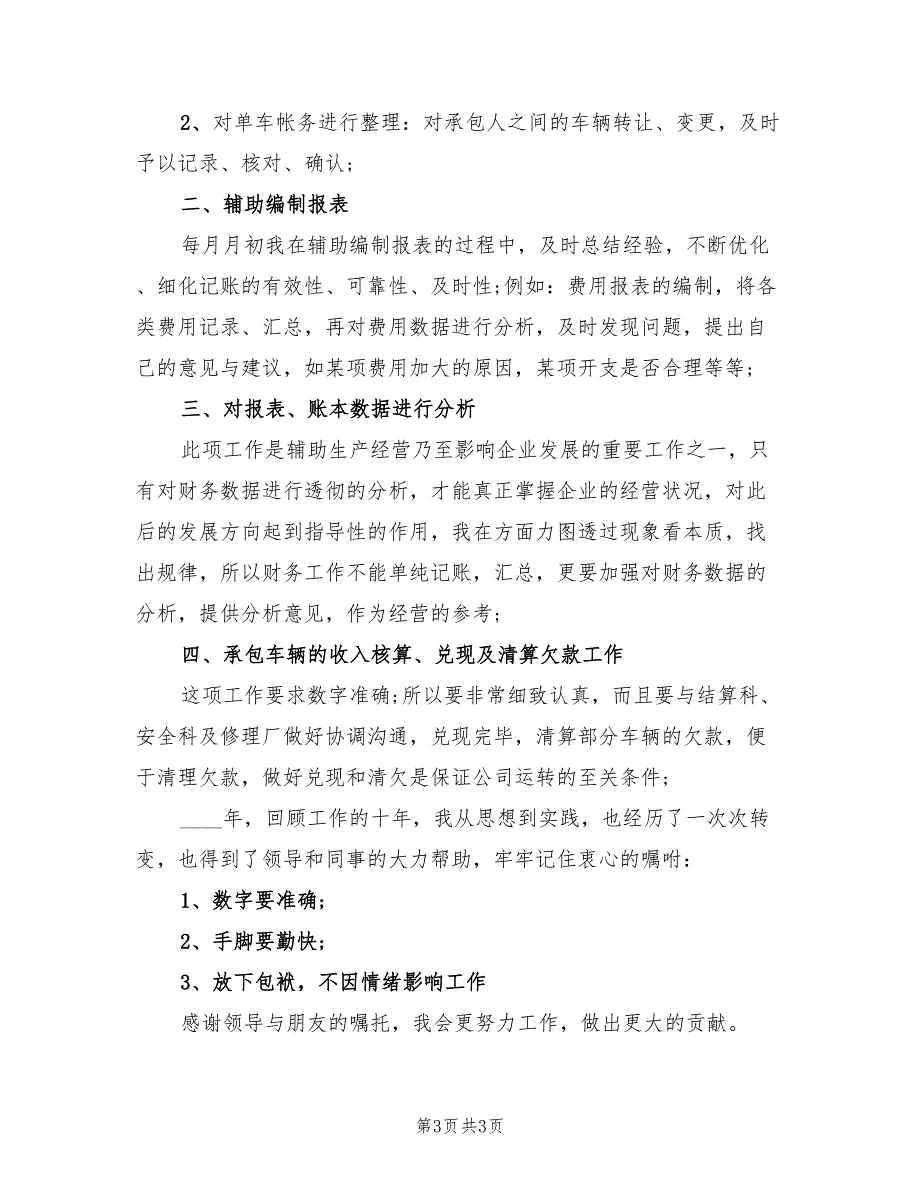 2、对单车帐务进行整理：对承包人之间的车辆转让、变更，及时
予以记录、核对、确认;
二、辅助编制报表
每月月初我在辅助编制报表的过程中，及时总结经验，不断优化
、细化记账的有效性、可靠性、及时性;例如：费用报表的编制，将各
类费用记录、汇总，再对费用数据进行分析，及时发现问题，提出自
己的意见与建议，如某项费用加大的原因，某项开支是否合理等等;
三、对报表、账本数据进行分析
此项工作是辅助生产经营乃至影响企业发展的重要工作之一，只
有对财务数据进行透彻的分析，才能真正掌握企业的经营状况，对此
后的发展方向起到指导性的作用，我在方面力图透过现象看本质，找
出规律，所以财务工作不能单纯记账，汇总，更要加强对财务数据的
分析，提供分析意见，作为经营的参考;
四、承包车辆的收入核算、兑现及清算欠款工作
这项工作要求数字准确;所以要非常细致认真，而且要与结算科、
安全科及修理厂做好协调沟通，兑现完毕，清算部分车辆的欠款，便
于清理欠款，做好兑现和清欠是保证公司运转的至关条件;
____年，回顾工作的十年，我从思想到实践，也经历了一次次转
变，也得到了领导和同事的大力帮助，牢牢记住衷心的嘱咐：
1、数字要准确;
2、手脚要勤快;
3、放下包袱，不因情绪影响工作
感谢领导与朋友的嘱托，我会更努力工作，做出更大的贡献。
第3页 共3页